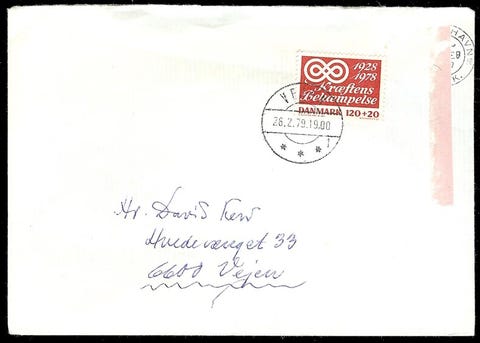 1928
1978
Kræftens
Bekæmpelse
DANMARK 120+20
26.2.79.19.00
1
HAVN
K.
Hr. David
Hvedevænget 33
6600 Vejen